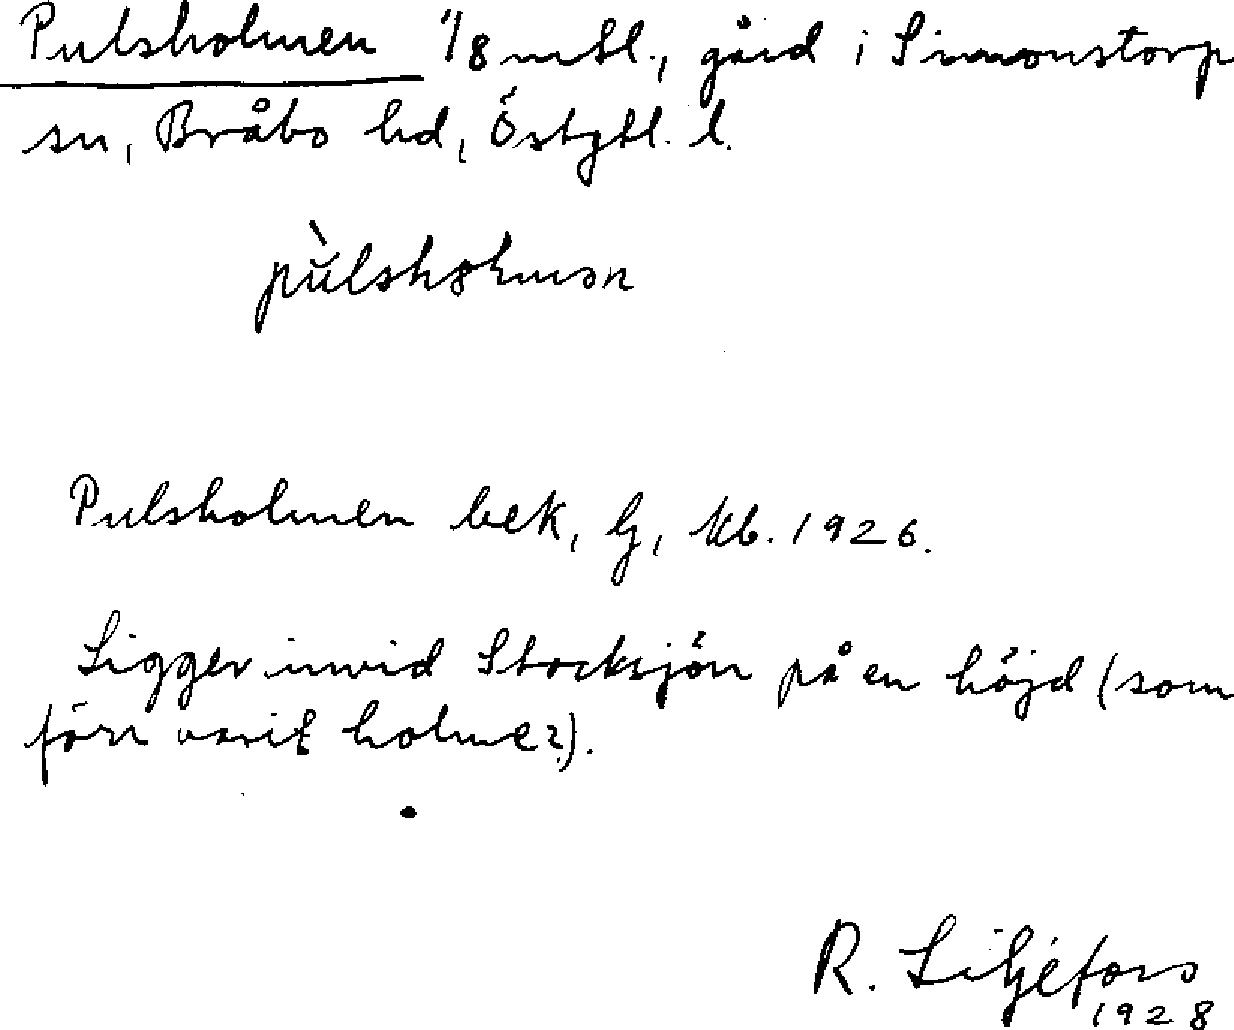 Pulsholmen 1/8 mtl., gård i Simonstorp
sn, Bråbo hd, Östgtl. l.
pùlshɷlmən
Pulsholmen bek, G, kb. 1926.
Ligger invid Stocksjön på en höjd (som
förr varit holme?).
R. Liljefors
1928